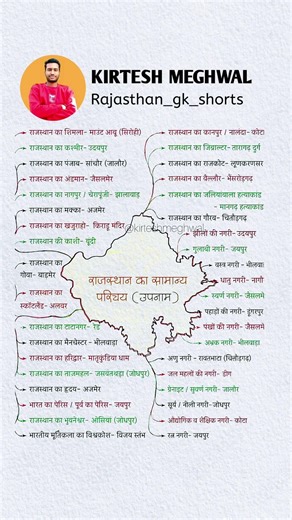 KIRTESH MEGHWAL
Rajasthan_gk_shorts
राजस्थान का शिमला- माउंट आबू (सिरोही)
राजस्थान का कश्मीर- उदयपुर
राजस्थान का पंजाब- सांचौर (जालौर)
राजस्थान का अंडमान- जैसलमेर
राजस्थान का नागपुर / चेरापूंजी- झालावाड़
राजस्थान का मक्का- अजमेर
राजस्थान का खजुराहो- किराडू मंदिर
राजस्थान की काशी- बूंदी
राजस्थान का
गोवा- बाड़मेर
राजस्थान का
स्कॉटलैंड- अलवर
राजस्थान का टाटानगर-
राजस्थान का मैनचेस्टर- भीलवाड़ा
राजस्थान का हरिद्वार- मातृकुंडिया धाम
राजस्थान का ताजमहल- जसवंतथड़ा (जोधपुर)
राजस्थान का ह्रदय- अजमेर
भारत का पेरिस / पूर्व का पेरिस- जयपुर
राजस्थान का भुवनेश्वर- ओसियां (जोधपुर)
भारतीय मूर्तिकला का विश्वकोश- विजय स्तंभ
राजस्थान का कानपुर / नालंदा- कोटा
राजस्थान का जिब्राल्टर- तारागढ़ दुर्ग
राजस्थान का राजकोट- लूणकरणसर
राजस्थान का वैल्लोर- भैंसरोड़गढ़
राजस्थान का जलियांवाला हत्याकांड
- मानगढ़ हत्याकांड
राजस्थान का गौरव- चितौड़गढ़
झीलों की नगरी- उदयपुर
गुलाबी नगरी- जयपुर
वस्त्र नगरी- भीलवा
धातु नगरी- नागौ
स्वर्ण नगरी- जैसलमे
पहाड़ों की नगरी- डूंगरपु
पंखों की नगरी- जैसलमे
अभ्रक नगरी- भीलवाड़ा
अणु नगरी- रावतभाटा (चितौड़गढ़)
जल महलों की नगरी- डीग
ग्रेनाइट / सुवर्ण नगरी- जालोर
सूर्य / नीली नगरी-जोधपुर
औद्योगिक व शैक्षिक नगरी- कोटा
रत्न नगरी- जयपुर
@kirteshmeghwal
राजस्थान का सामान्य
परिचय (उपनाम)